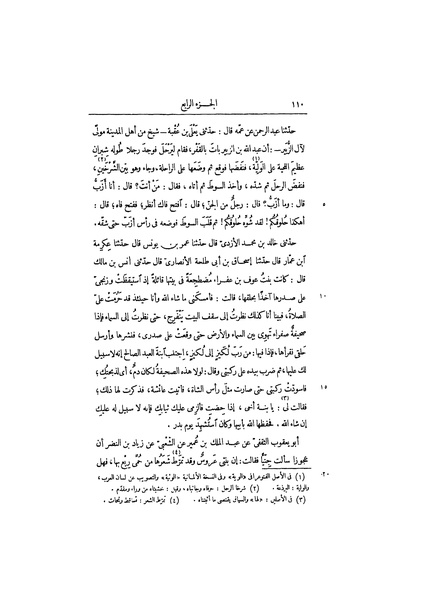 ١١٠ الجزء الرابع
حدثنا عبد الرحمن عن عمّه قال : حدثنى يَعْلَى بن عُقْبة ــ شيخ من أهل المدينة مولًى
لآل الزُّبَير ــ : أن عبد الله بن الزبير باتَ بالقَفْر، فقام ليَرْحَل فوجد رجلا طُوله شِبران
عظيمَ اللحية على الوَلِيّة(١)، فنَفَضها فوقع ثم وضَعها على الراحلة. وجاء وهو بين الشَّرْخَين(٢)،
فنفضَ الرحلَ ثم شدّه ، وأخذ السوطَ ثم أتاه ، فقال : مَنْ أنت؟ قال : أنا أزَبُّ
٥ قال : وما أزَبُّ؟ قال : رجلٌ من الجنّ؛ قال : افتح فاك أنظر؛ ففتح فاه؛ قال :
أهكذا حُلوقُكم! لقد شُوِّه حُلوقُكم! ثم قلَب السوطَ فوضعه فى رأس أزَبّ حتى شقّه.
حدثنى خالد بن محمد الأزدىّ قال حدثنا عمر بن يونس قال حدثنا عِكرِمة
ابن عمّار قال حدثنا إسحاق بن أبى طلحة الأنصارىّ قال حدثنى أنس بن مالك
قال : كانت بنتُ عوف بن عفراء مُضطجِعةً فى بيتها قائلةً إذ استيقظَتْ وزنجىّ
١٠ على صدرها آخذًا بحلقها، قالت : فأمسكنى ما شاء الله وأنا حينئذ قد حَرُمَتْ علىّ
الصلاةُ، فبينا أنا كذلك نظرتُ إلى سقف البيت يَنْفَرِج، حتى نظرتُ إلى السماء فإذا
صحيفةٌ صفراء تَهوِى بين السماء والأرض حتى وقعتْ على صدرى، فنشرها وأرسل
حَلقى فقرأها، فإذا فيها: من رَبّ لُكَيْز إلى لُكَيْز، اجتنب ابنةَ العبد الصالح إنه لا سبيل
لك عليها، ثم ضرب بيده على ركبتى وقال: لولا هذه الصحيفة لكان دمٌ، أى لذبحتُك؛
١٥ فاسودّتْ ركبتى حتى صارت مثل رأس الشاة، فأتيت عائشة، فذكرت لها ذلك؛
فقالت لى(٣) : يا بنة أخى ، إذا حِضتِ فالزمى عليك ثيابَك فإنه لا سبيل له عليك
إن شاء الله . فحفظها الله بأبيها وكان استُشهِد يوم بدر .
أبو يعقوب الثقفىّ عن عبد الملك بن عُمير عن الشَّعْبىّ عن زياد بن النضر أن
عجوزا سألت جِنّيًّا فقالت: إن بنتى عَروسٌ وقد تَمَرَّط(٤) شَعرُها من حُمَّى رِبْعٍ بها، فهل
٢٠ (١) فى الأصل الفتوغرافى «الوربة» وفى النسخة الألمانية «الوثبة» والتصويب عن لسان العرب،
والولية : البرذعة . (٢) شرخا الرحل : حرفاه وجانباه ، وقيل : خشبتاه من وراء ومقدّم .
(٣) فى الأصلين : «لها» والسياق يقتضى ما أثبتناه . (٤) تمرّط الشعر : تساقط وتحات .